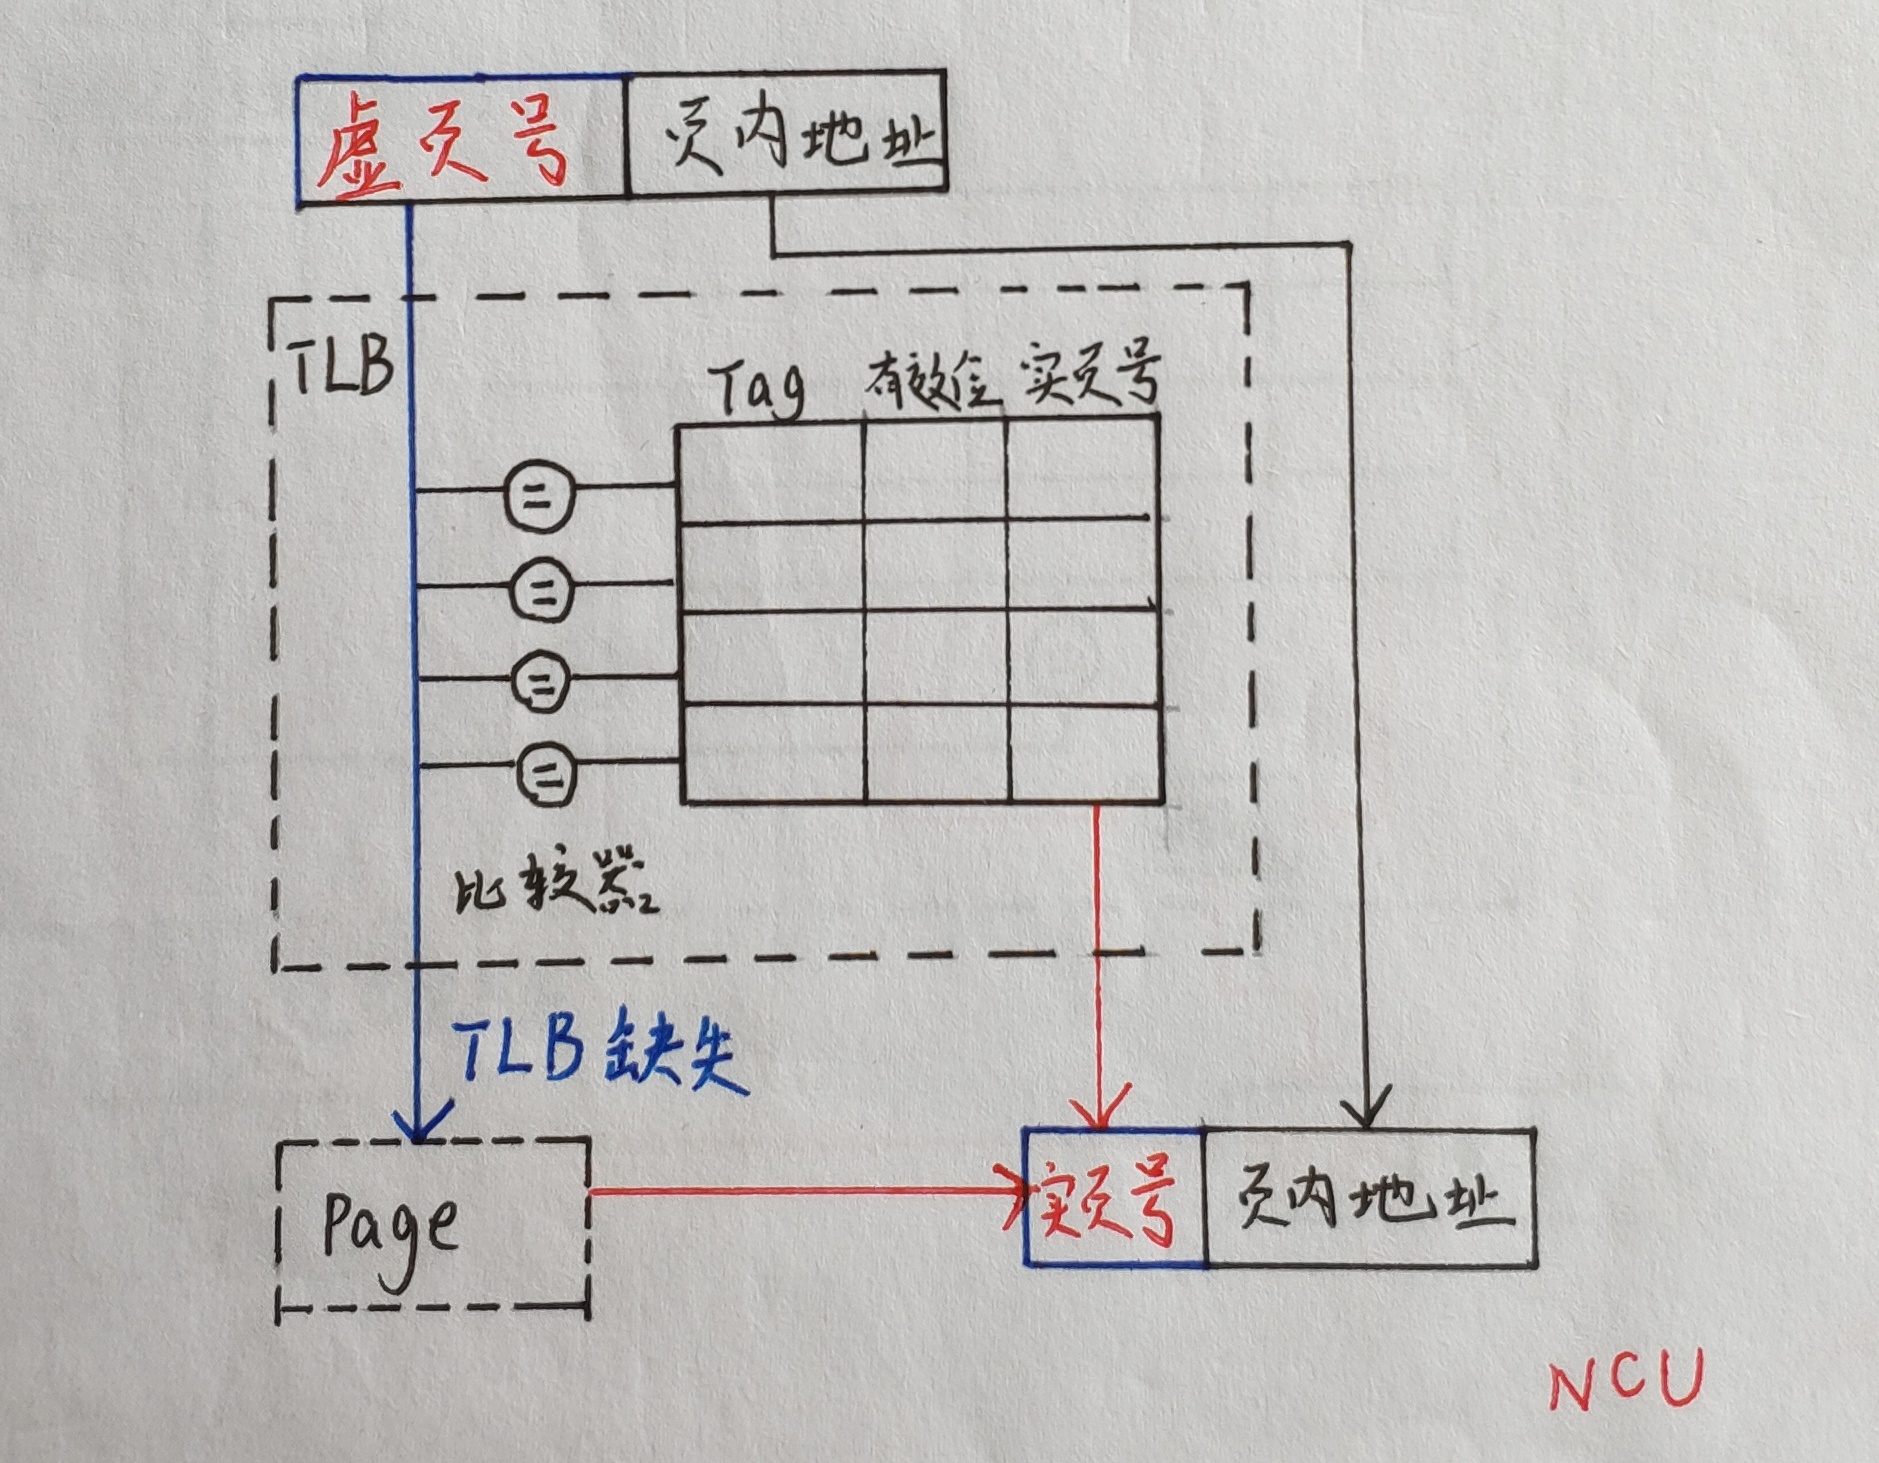 虚页号 页内地址
TLB
Tag 有效位 实页号
=
=
=
=
比较器
TLB 缺失
Page
实页号 页内地址
NCU